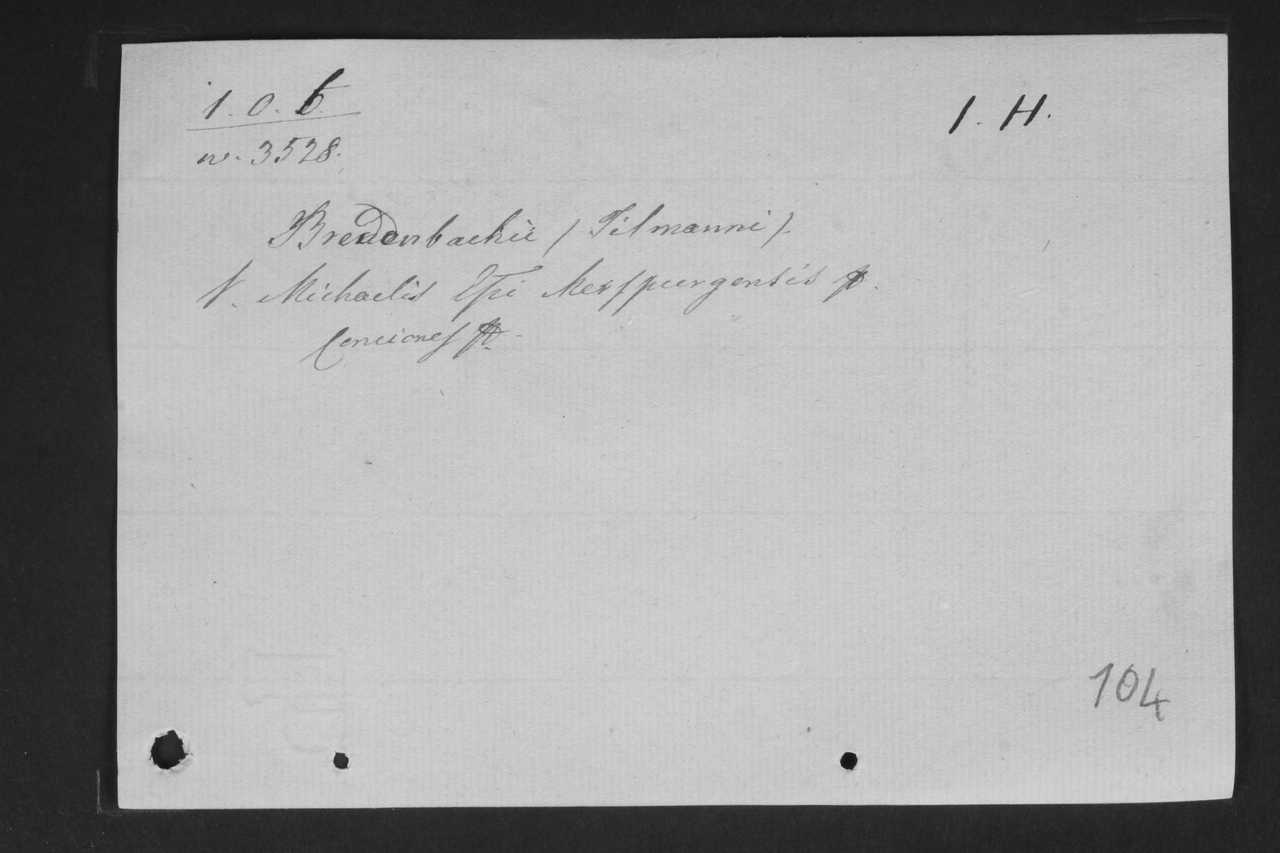 1. O. b.
I. H.
n. 3528.
Bredenbachii / Tilmanni /.
V. Michaelis Epi Merspurgensis
Conciones
104